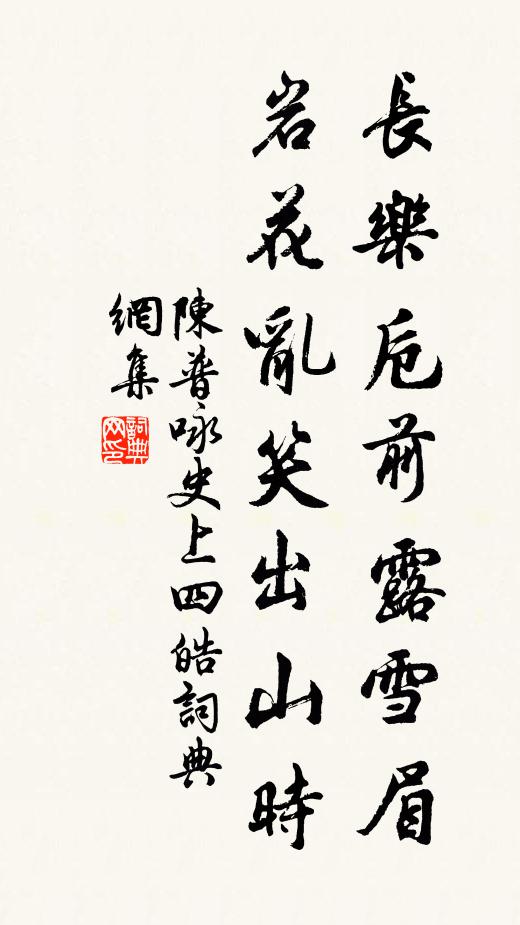 長樂卮前露雪眉
岩花亂笑出山時
陳普咏史上四皓詞典
網集
詞典
网印